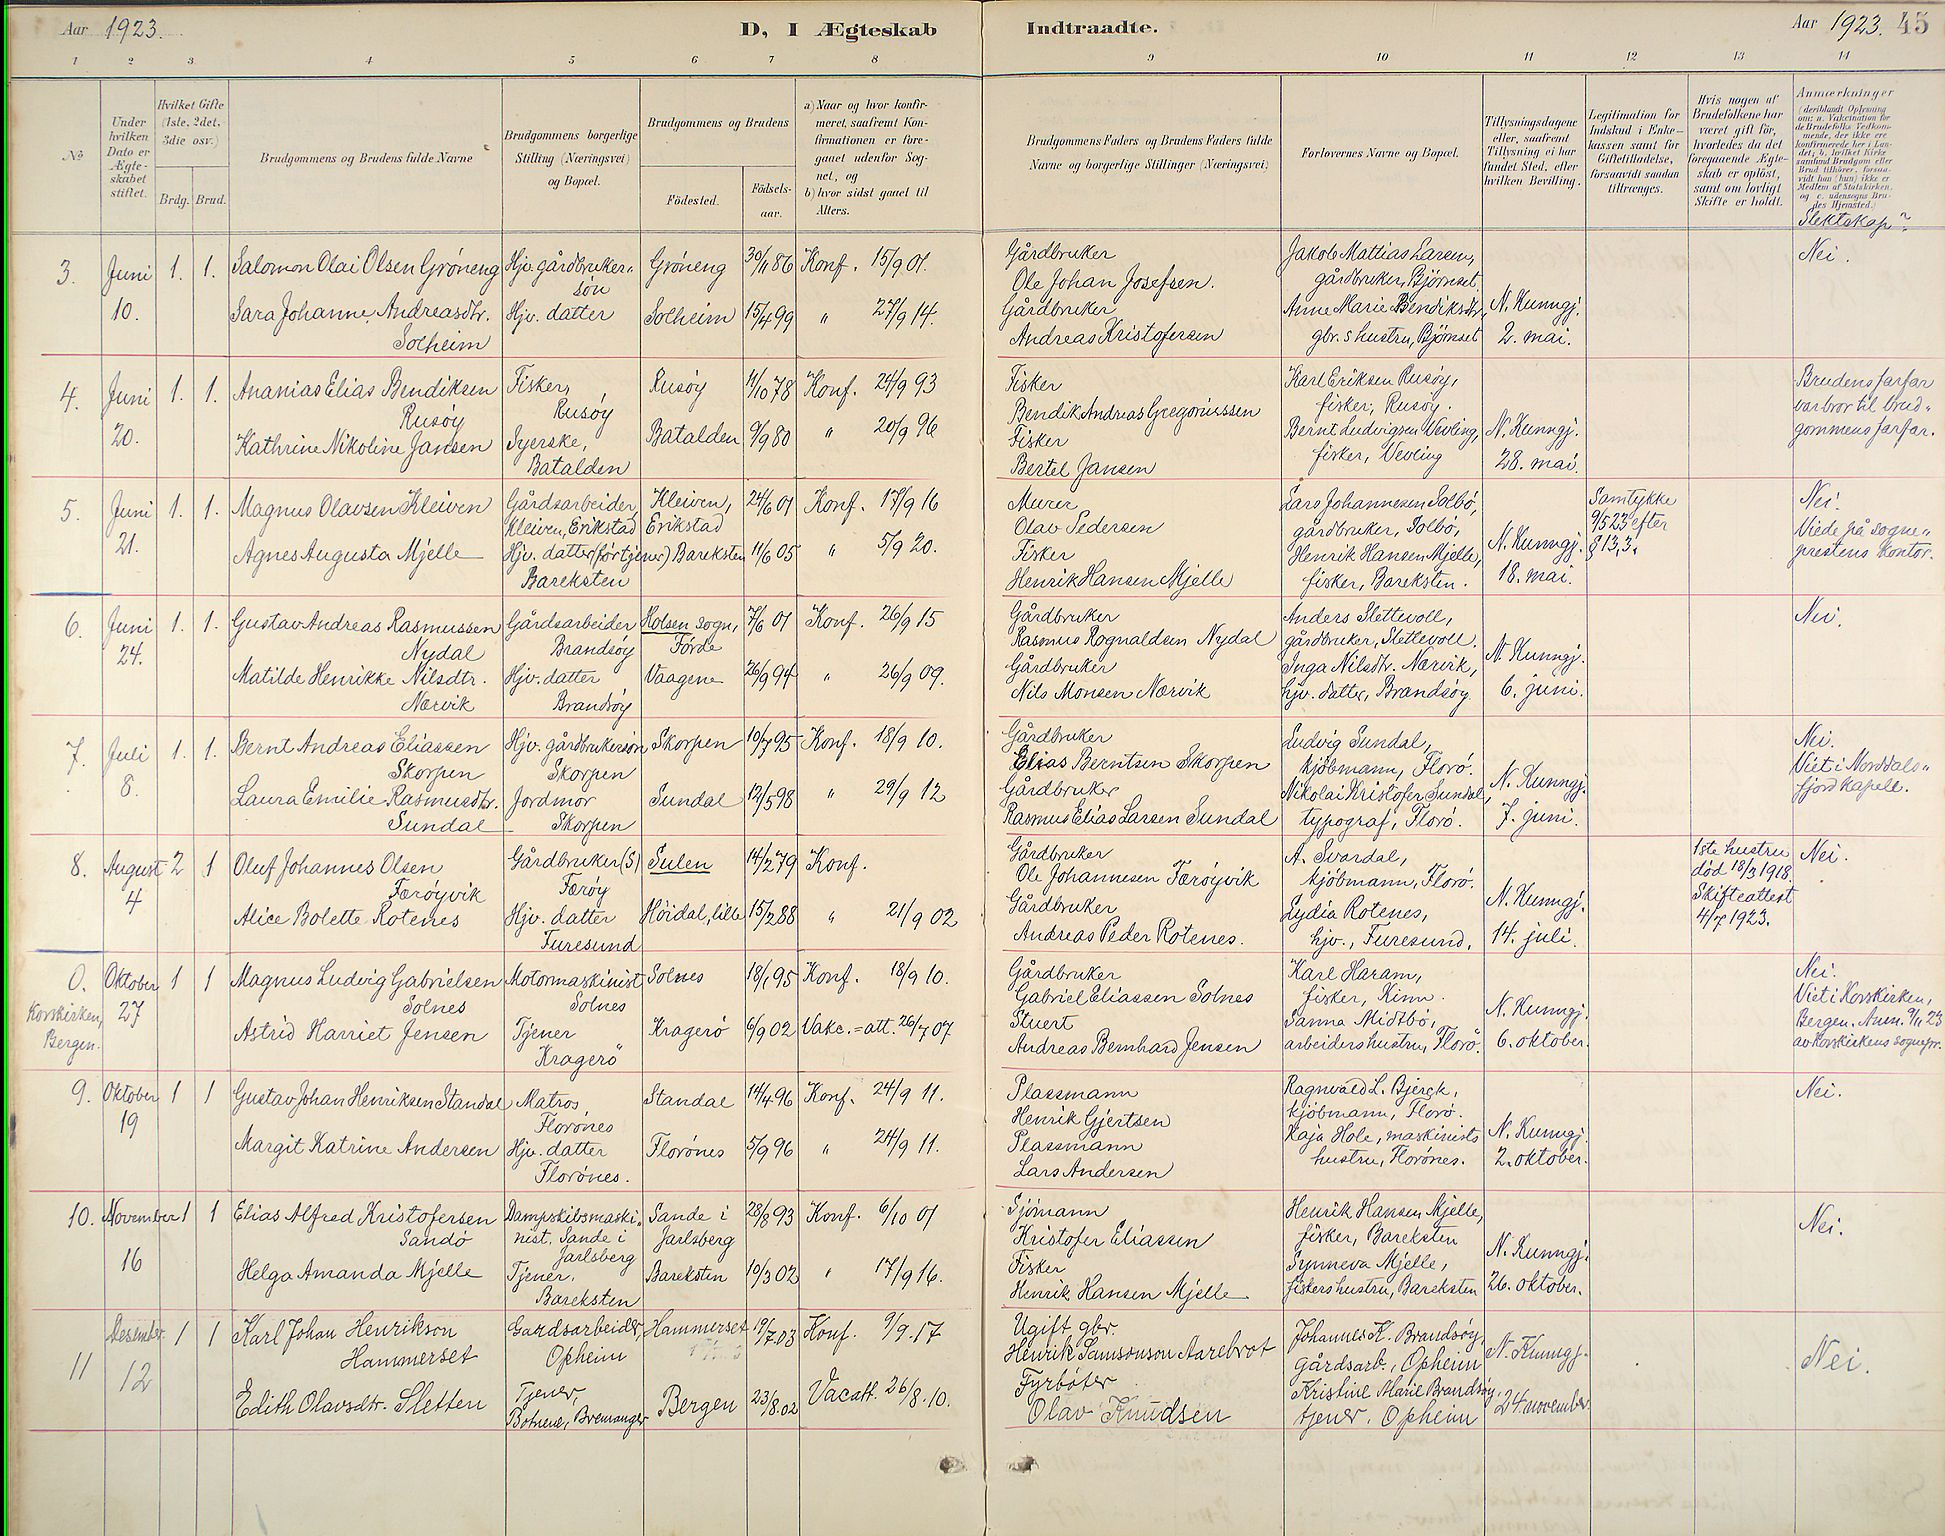 Aar 1923.
D, I Ægteskab Indtraadte.
Aar 1923. 45
1 2 3 4 5 6 7 8 9 10 11 12 13 14
No
Under hvilken Dato er Ægteskabet stiftet.
Hvilket Gifte (1ste, 2det, 3die osv.)
Brdg. Brud.
Brudgommens og Brudens fulde Navne
Brudgommens borgerlige Stilling (Næringsvei) og Bopæl.
Brudgommens og Brudens
Födested.
Födsels-aar.
a) Naar og hvor konfirmeret, saafremt Konfirmationen er foregaaet udenfor Sognet, og
b) hvor sidst gaaet til Alters.
Brudgommens Faders og Brudens Faders fulde Navne og borgerlige Stillinger (Næringsvei)
Forlovernes Navne og Bopæl.
Tillysningsdagene eller, saafremt Tillysning ei har fundet Sted, efter hvilken Bevilling.
Legitimation for Indskud i Enkekassen samt for Giftetilladelse, forsaavidt saadan tiltrænges.
Hvis nogen af Brudefolkene har været gift för, hvorledes da det foregaaende Ægteskab er oplöst, samt om lovligt Skifte er holdt.
Anmærkninger
(deriblandt Oplysning om: a. Vakcination for de Brudefolks Vedkommende, der ikke ere konfirmerede her i Landet; b. hvilket Kirkesamfund Brudgom eller Brud tilhörer, forsaavidt han (hun) ikke er Medlem af Statskirken, og c. udensogns Brudes Hjemsted.)
Slektskap?
3. Juni 10. 1. 1.
Salomon Olai Olsen Gröneng
Hjv. gårdbruker- sön
Gröneng 30/11 86 Konf. 15/9 01.
Sara Johanne Andreasdtr. Solheim
Hjv. datter
Solheim 15/4 99 " 27/9 14.
Gårdbruker
Ole Johan Josefsen.
Gårdbruker
Andreas Kristofersen
Jakob Mattias Larsen,
gårdbruker, Björnset.
Anne Marie Bendiksdtr,
gbr.s hustru, Björnset
N. Kunngj.
2. mai.
Nei.
4. Juni 20. 1. 1.
Ananias Elias Bendiksen Rusöy
Fisker, Rusöy
Rusöy 11/10 78 Konf. 24/9 93
Kathrine Nikoline Jansen
Syerske, Batalden
Batalden 9/9 80 " 20/9 96
Fisker
Bendik Andreas Gregoriussen
Fisker
Bertel Jansen
Karl Eriksen Rusöy,
fisker, Rusöy.
Bernt Ludvigsen Vevling,
fisker, Vevling
N. Kunngj.
28. mai.
Brudens farfar
var bror til brud-
gommens farfar.
5. Juni 21. 1. 1.
Magnus Olavsen Kleiven
Gårdsarbeider, Kleiven, Erikstad
Kleiven, Erikstad 24/6 01 Konf. 17/9 16
Agnes Augusta Mjelle
Hjv. datter (förtjener) Bareksten
Bareksten 11/6 05 " 5/9 20.
Murer
Olav Pedersen
Fisker
Henrik Hansen Mjelle
Lars Johannesen Solbö,
gårdbruker, Solbö,
Henrik Hansen Mjelle,
fisker, Bareksten.
N. Kunngj.
18. mai.
Samtykke
9/5 23 efter
§ 13,3.
Nei.
Viede på sogne-
prestens kontor.
6. Juni 24. 1. 1.
Gustav Andreas Rasmussen Nydal
Gårdsarbeider Brandsöy
Holsen sogn, Förde 7/6 01 Konf. 26/9 15
Matilde Henrikke Nilsdtr. Nærvik
Hjv. datter Brandsöy
Vaagene 26/9 94 " 26/9 09.
Gårdbruker
Rasmus Rognaldsen Nydal
Gårdbruker
Nils Monsen Nærvik
Anders Slettevoll,
gårdbruker, Slettevoll.
Inga Nilsdtr. Nærvik,
hjv. datter, Brandsöy
N. Kunngj.
6. juni.
Nei.
7. Juli 8. 1. 1.
Bernt Andreas Eliassen Skorpen
Hjv. gårdbrukersön Skorpen
Skorpen 10/7 95 Konf. 18/9 10.
Laura Emilie Rasmusdtr. Sundal
Jordmor Skorpen
Sundal 12/5 98 " 29/9 12
Gårdbruker
Elias Berntsen Skorpen
Gårdbruker
Rasmus Elias Larsen Sundal
Ludvig Sundal,
kjöbmann, Florö.
Nikolai Kristofer Sundal,
typograf, Florö.
N. Kunngj.
7. juni.
Nei.
Viet i Norddals-
fjord kapell.
8. August 4 2 1
Oluf Johannes Olsen Færöyvik
Gårdbruker (S) Færöy
Sulen 14/2 79 Konf.
Alice Bolette Rotenes
Hjv. datter Furesund
Höidal, lille 15/2 88 " 21/9 02
Gårdbruker
Ole Johannesen Færöyvik
Gårdbruker
Andreas Peder Rotenes.
A. Svardal,
kjöbmann, Florö.
Lydia Rotenes,
hjv., Furesund.
N. Kunngj.
14. juli.
1ste hustru
död 18/3 1918.
Skifteattest
4/7 1923.
Nei.
0. Korskirken, Bergen. Oktober 27 1 1
Magnus Ludvig Gabrielsen Solnes
Motormaskinist Solnes
Solnes 18/1 95 Konf. 18/9 10.
Astrid Harriet Jensen
Tjener Kragerö
Kragerö 6/9 02 Vakc.=att. 26/7 07
Gårdbruker
Gabriel Eliassen Solnes
Stuert
Andreas Bernhard Jensen
Karl Haram,
fisker, Kinn.
Sanna Midtbö,
arbeiders hustru, Florö.
N. Kunngj.
6. oktober.
Nei.
Viet i Korskirken,
Bergen. Anm. 9/11 23
av Korskirkens sognepr.
9. Oktober 19 1 1
Gustav Johan Henriksen Standal
Matros, Florönes
Standal 14/4 96 Konf. 24/9 11.
Margit Katrine Andersen
Hjv. datter Florönes.
Florönes 5/9 96 " 24/9 11.
Plassmann
Henrik Gjertsen
Plassmann
Lars Andersen
Ragnvald L. Bjerck,
kjöbmann, Florö.
Kaja Hole, maskinists
hustru, Florönes.
N. Kunngj.
2. oktober.
Nei.
10. November 16 1 1
Elias Alfred Kristofersen Sandö
Dampskibsmaski- nist. Sande i Jarlsberg
Sande i Jarlsberg 28/8 93 Konf. 6/10 07
Helga Amanda Mjelle
Tjener, Bareksten
Bareksten 10/3 02 " 17/9 16.
Sjömann
Kristofer Eliassen
Fisker
Henrik Hansen Mjelle
Henrik Hansen Mjelle,
fisker, Bareksten
Synneva Mjelle,
fiskers hustru, Bareksten
N. Kunngj.
26. oktober.
Nei.
11 Desember 12 1 1
Karl Johan Henrikson Hammerset
Gardsarbeider, Opheim
Hammerset 19/7.03 Konf. 9/9.17
Edith Olavsdtr. Sletten
Tjener, Botnene, Bremanger
Bergen 23/8.02 Vacatt. 26/8.10.
Ugift gbr.
Henrik Samsonson Aarebrot
Fyrböter
Olav Knudsen
Johannes K. Brandsöy,
gårdsarb., Opheim
Kristine Marie Brandsöy,
tjener. Opheim
N. Kunngj.
24. november.
Nei.